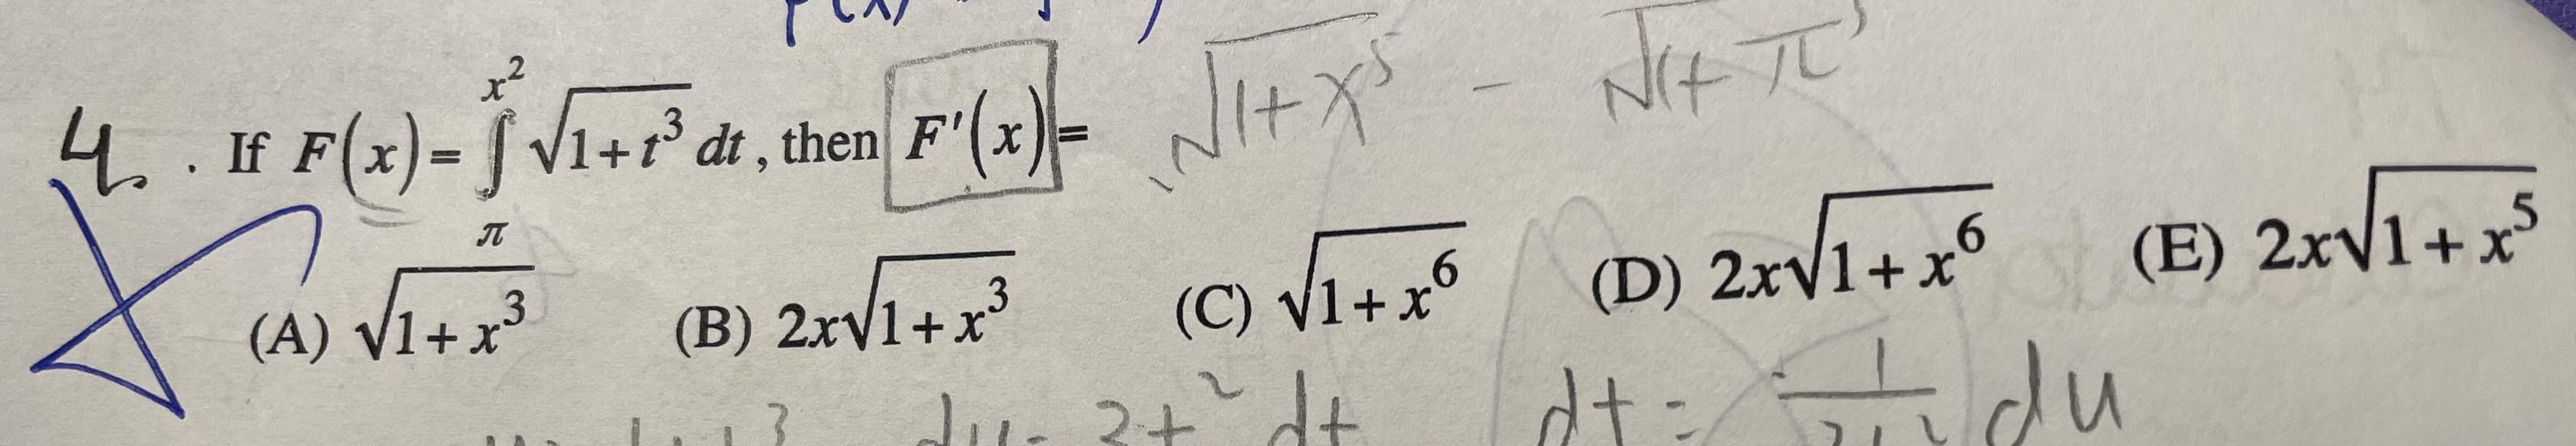 4. . If F(x) = ∫_π^{x²} √(1+t³) dt, then F'(x) = √(1+x⁵) - √(1+π³)
(A) √(1+x³) (B) 2x√(1+x³) (C) √(1+x⁶) (D) 2x√(1+x⁶) (E) 2x√(1+x⁵)
du = 3t² dt dt = du